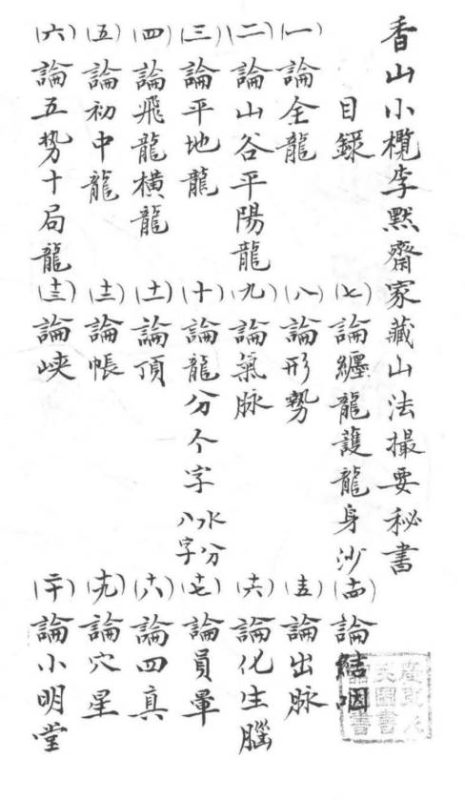 香山小欖李默齋家藏山法撮要秘書
目錄
(一)論全龍
(二)論山谷平陽龍
(三)論平地龍
(四)論飛龍橫龍
(五)論初中龍
(六)論五势十局龍
(七)論纏龍護龍身沙
(八)論形勢
(九)論氣脉
(十)論龍分个字水分八字
(十一)論頂
(十二)論帳
(十三)論峡
(十四)論結咽
(十五)論出脉
(十六)論化生腦
(十七)論員暈
(十八)論四真
(十九)論穴星
(二十)論小明堂